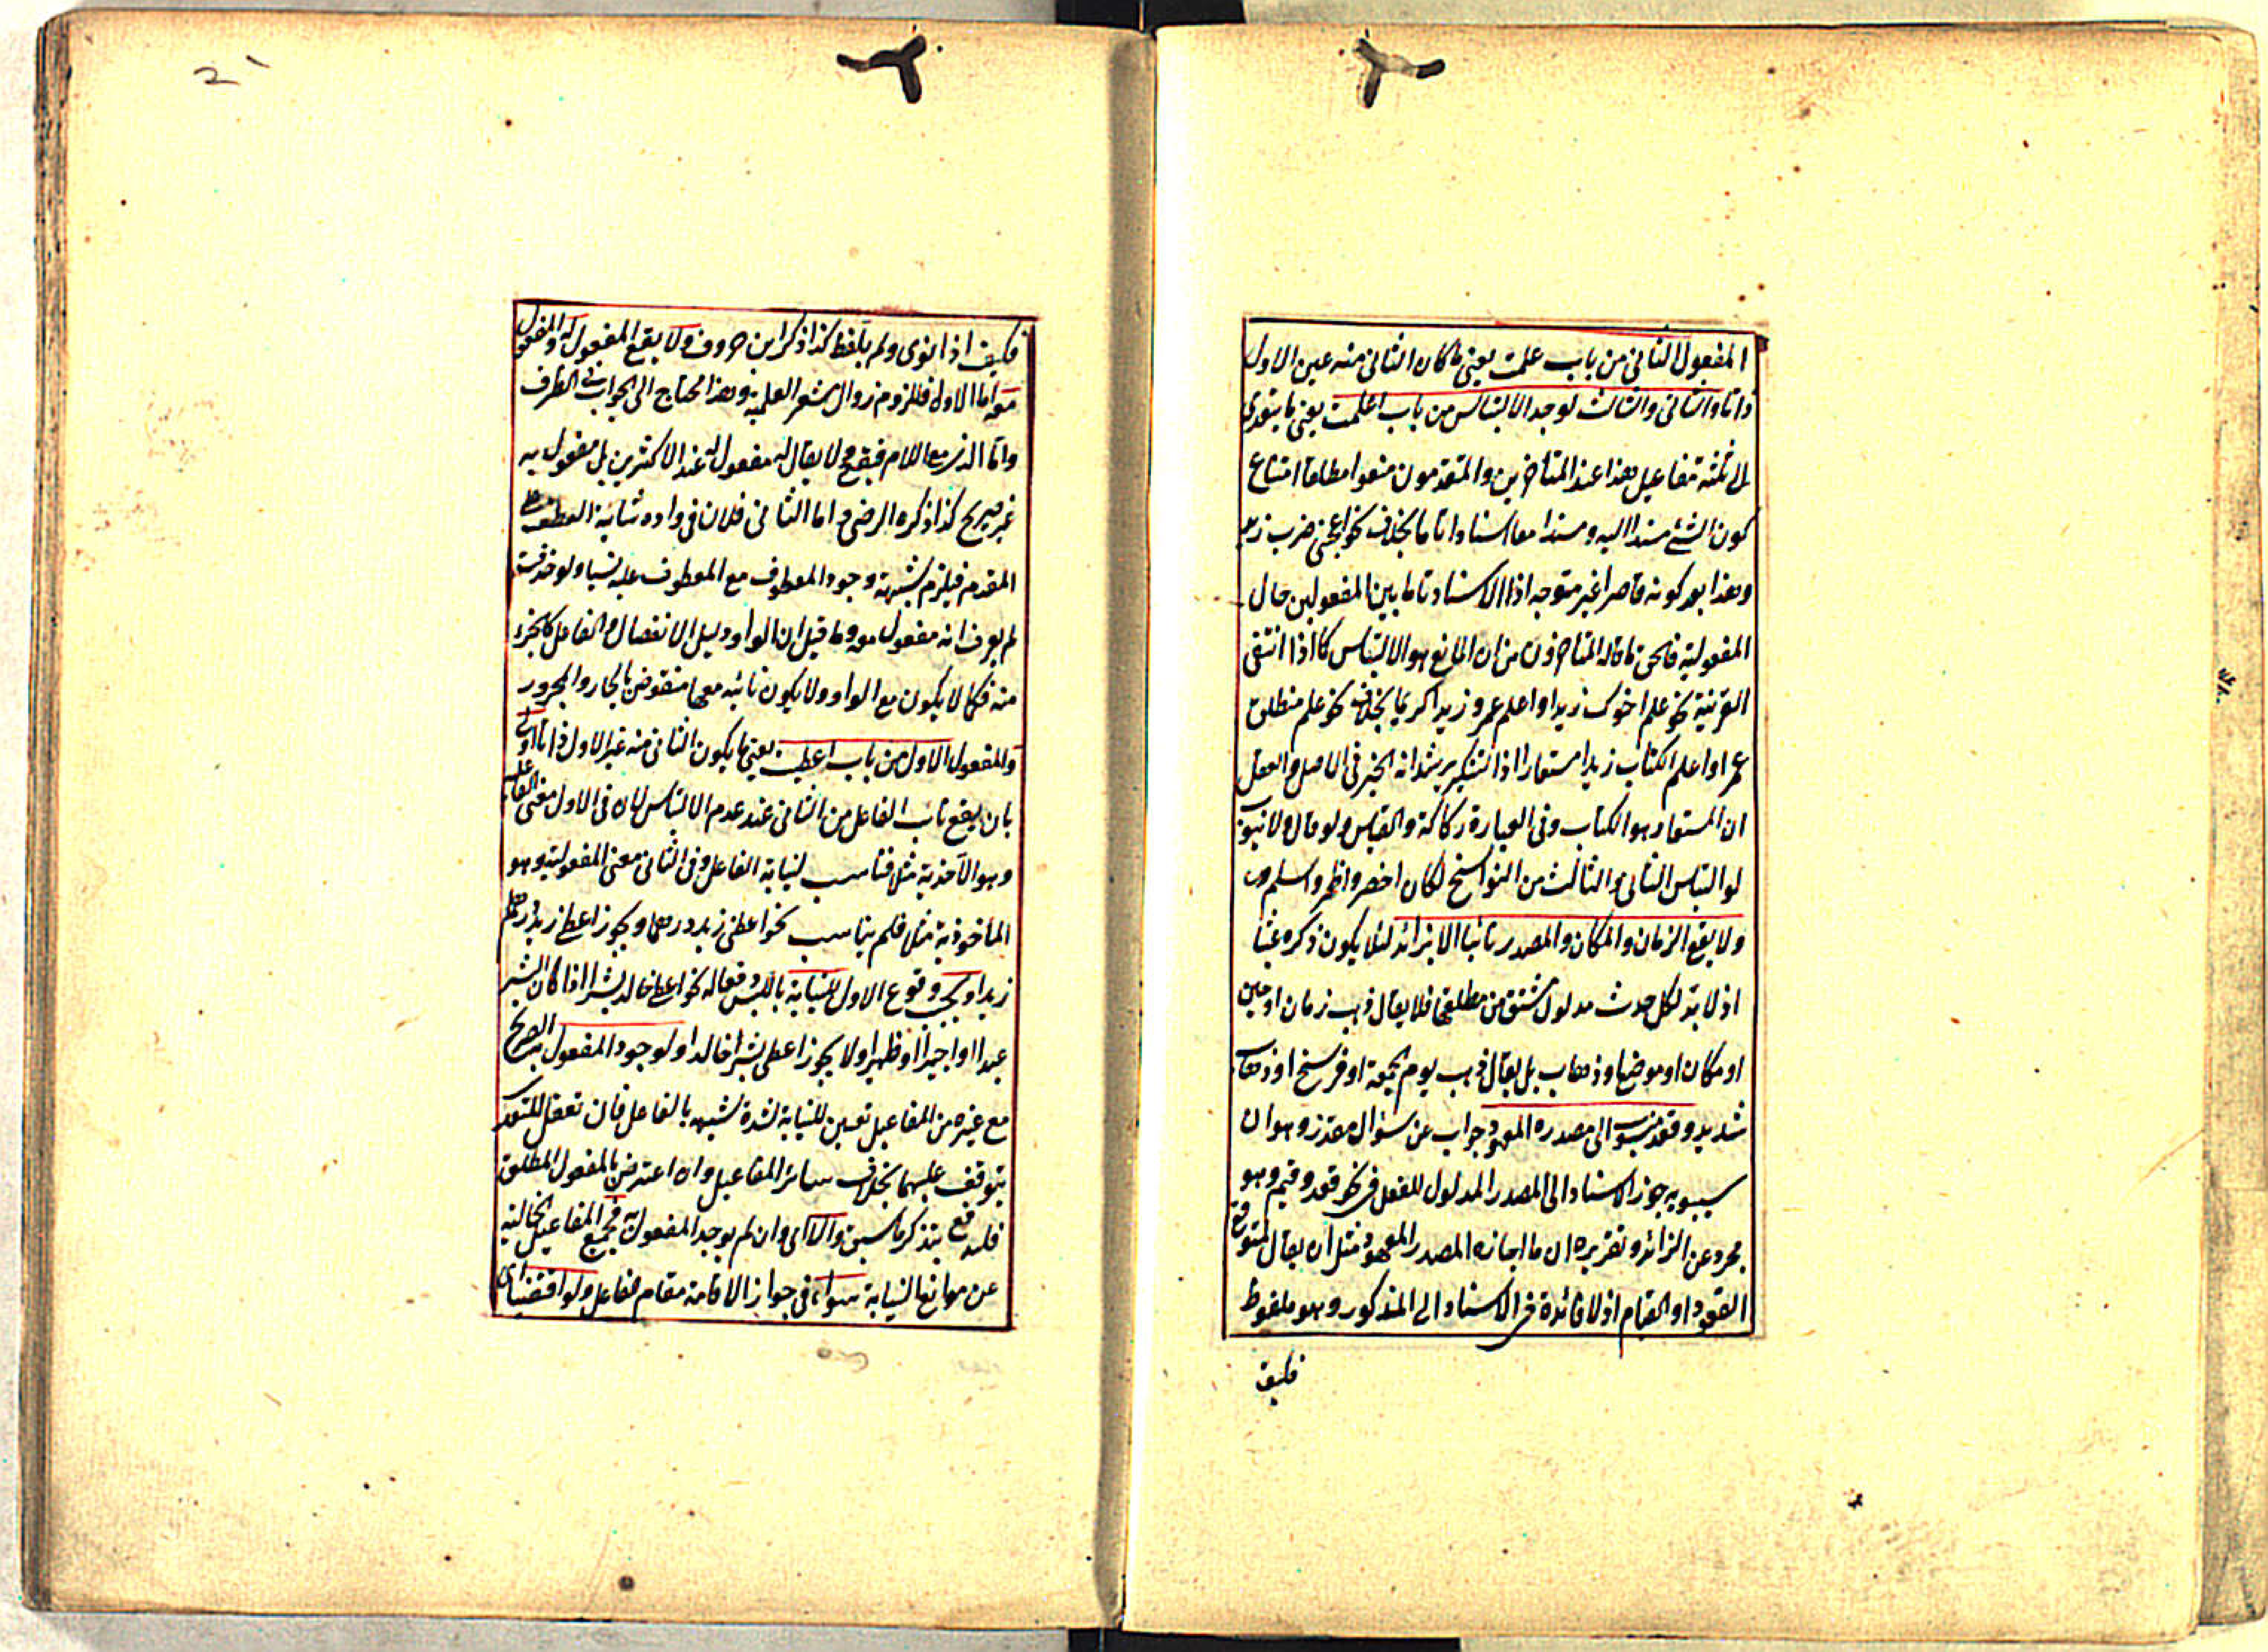 المفعول الثانى من باب علمت يعنى ما كان الثانى منه عين الاول
ذاتا والثانى والثالث لوجد الالتباس من باب اعلمت يعنى ما يتعدى
الى ثلثة مفاعيل هذا عند المتاخرين والمتقدمون منعوا مطلقا امتناع
كون الشئ مسندا اليه ومسندا معا اسنادا تاما بخلاف نحو اعجبنى ضرب زيد
وهذا بعد كونه قاصرا غير متوجه اذ الاسناد تاما بين المفعولين حال
المفعولية فالحق ما قاله المتاخرون من ان المانع هو الالتباس كما اذا انتفى
القرينة نحو علم اخوك زيدا واعلم عمرو زيدا كريما بخلاف نحو علم منطلق
عمرا واعلم الكتاب زيدا مستعارا اذ التنكير يرشد انه الخبر فى الاصل والعقل
ان المستعار هو الكتاب وفى العبارة ركاكة والقياس ولو قال ولا نيوب
لو التباس الثانى والثالث من النواسخ لكان اخصر واظهر واسلم
ولا يقع الزمان والمكان والمصدر نائبا الا بزائد لئلا يكون ذكره عبثا
اذ لا بد لكل حدث مدلول مشتق من مطلقها فلا يقال ذهب زمان او حين
او مكان او موضع او ذهاب بل يقال ذهب يوم الجمعة او فرسخ او ذهاب
شديد وقعد منسوب الى مصدره المعهود جواب عن سؤال مقدر وهو ان
سيبويه جوز الاسناد الى المصدر المدلول للفعل فى نحو قعد وقيم وهو
مجرد عن الزائد وتقريره ان ما اجازه المصدر المعهود مثل ان يقال لمتوقع
القعود او القيام اذ لا فائدة فى الاسناد الى المذكور وهو ملفوظ
فكيف
فكيف اذا نوى ولم يلفظ كذا ذكر ابن خروف ولا يقع المفعول له والمفعول
معه اما الاول فللزوم زوال مشعر العلية وهذا محتاج الى الجواب فى الظرف
واما الذى مع اللام فبقبح لا يقال له مفعول له عند الاكثرين بل مفعول به
غير صريح كذا ذكره الرضى واما الثانى فلان فى واوه شائبة العطف
المقدم فيلزم شبهة وجود المعطوف مع المعطوف عليه نسيا ولو حذفت
لم يعرف انه مفعول معه وما قيل ان الواو دليل الانفصال والفاعل كالجزء
منه فكما لا يكون مع الواو ولا يكون نائبه معها منقوض بالجار والمجرور
والمفعول الاول من باب اعطيت يعنى ما يكون الثانى منه غير الاول ذاتا اولى
بان يقع نائب الفاعل من الثانى عند عدم الالتباس لان فى الاول معنى الفاعلية
وهو الآخذية مثلا فتناسب لنيابة الفاعل وفى الثانى معنى المفعولية وهو
الماخوذية مثلا فلم يناسب نحو اعطى زيد درهما ويجوز اعطى درهم
زيدا ويجب وقوع الاول للنيابة باللبس دفعا له نحو اعطى خالد بشرا اذا كان البشر
عبدا او اجيرا او ظهيرا ولا يجوز اعطى بشر خالدا ولو وجد المفعول به الصريح
مع غيره من المفاعيل تعين للنيابة لشدة شبهه بالفاعل فان تعقل المتعدى
يتوقف عليهما بخلاف سائر المفاعيل وان اعترض بالمفعول المطلق
فليدفع بتذكر ما سبق والا اى وان لم يوجد المفعول به فجميع المفاعيل الخالية
عن موانع النيابة سواء فى جواز الاقامة مقام الفاعل ولو اقتضيا اى